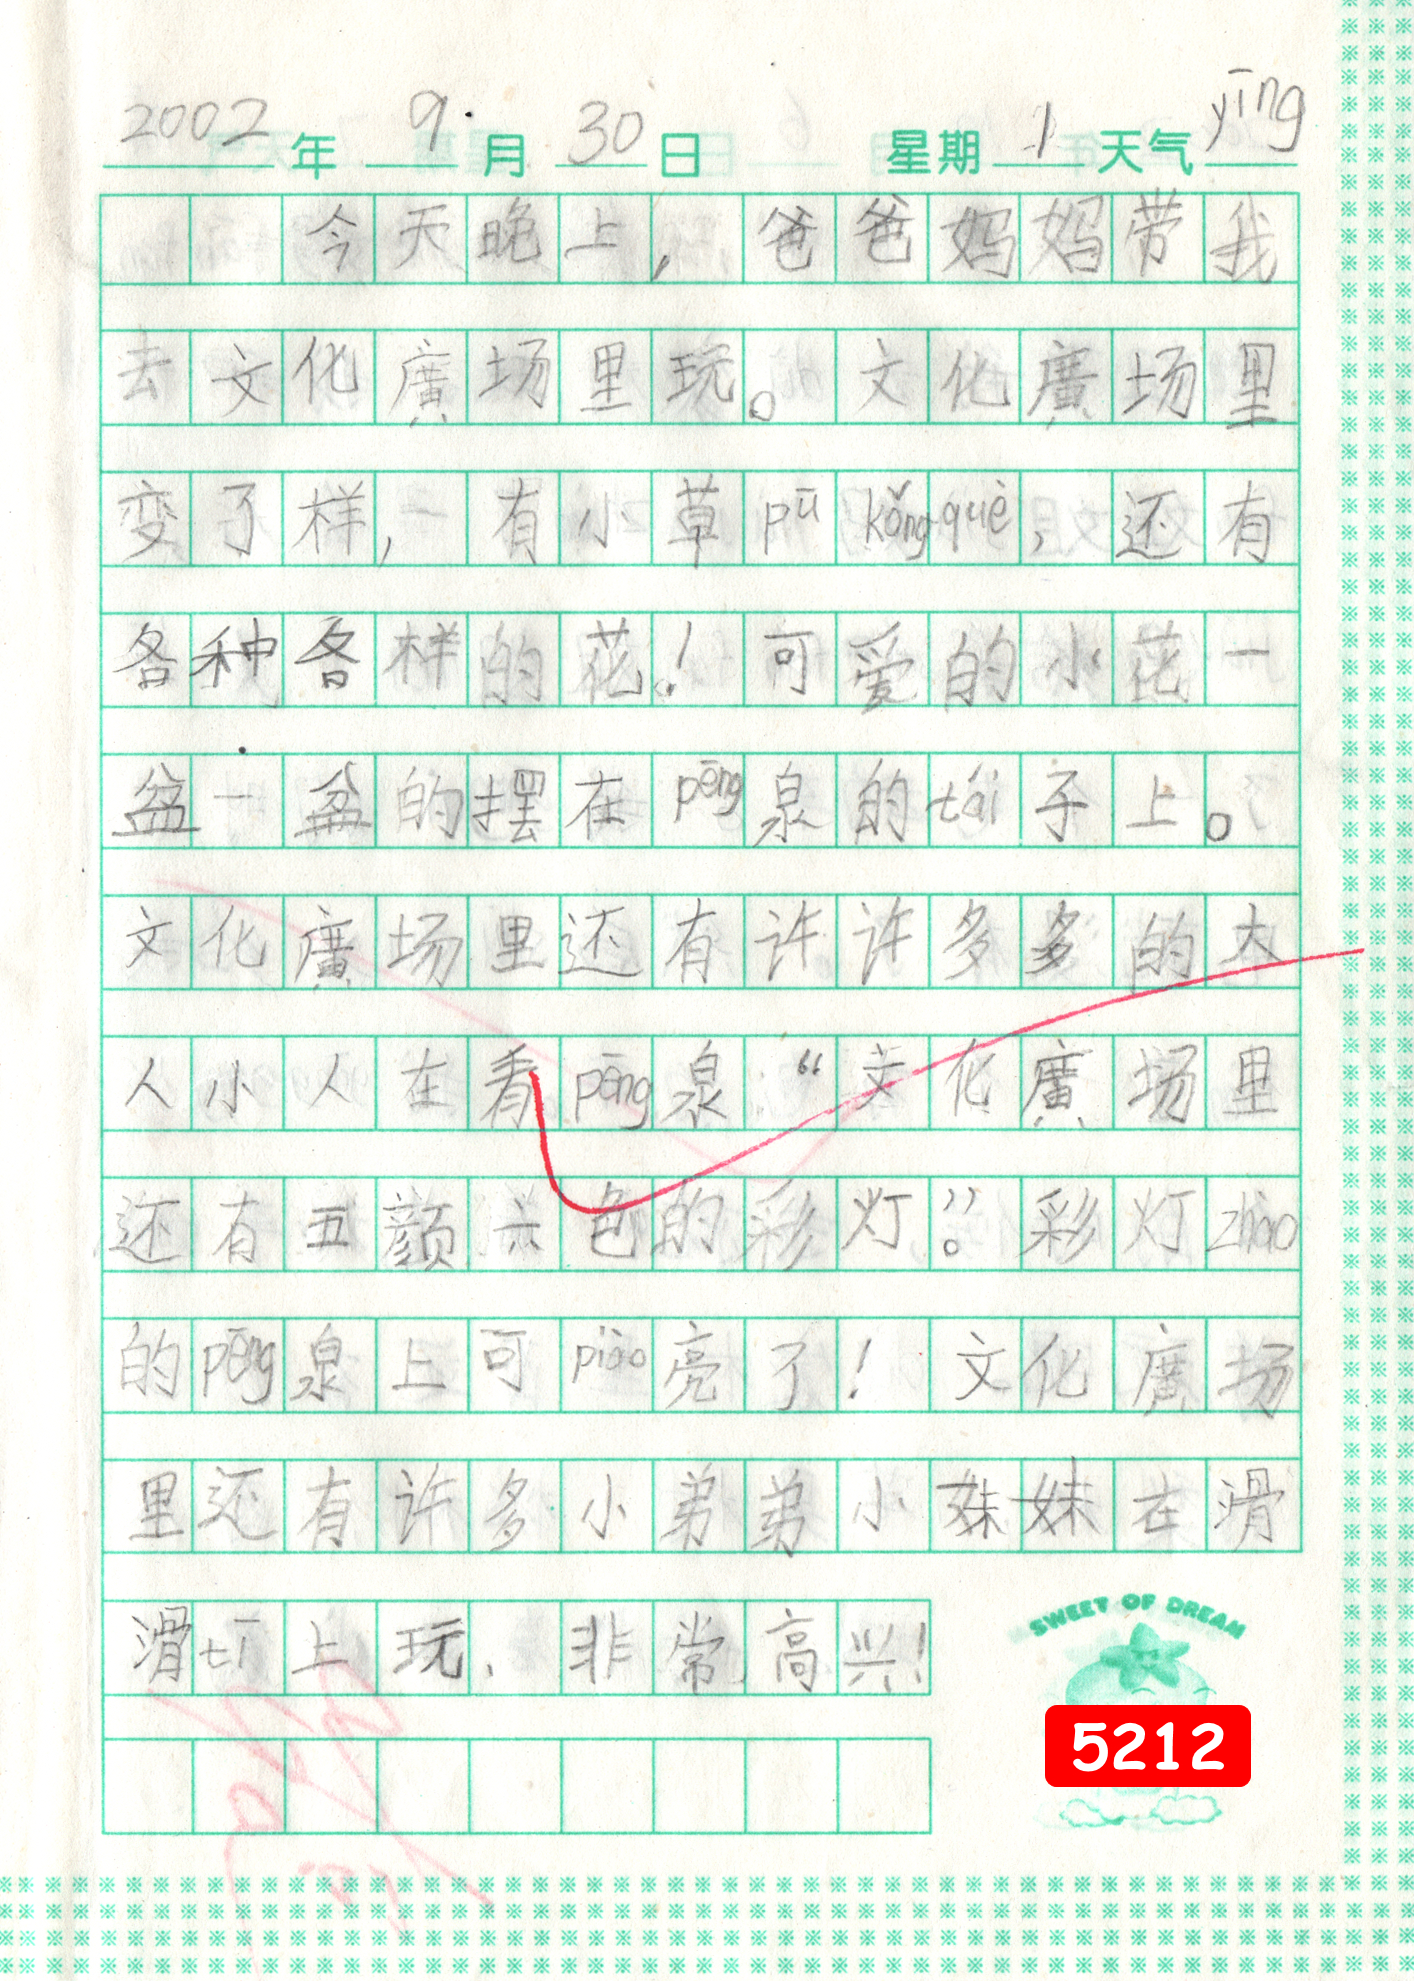 2002年 9月 30日 星期1 天气yīng
今天晚上,爸爸妈妈带我
去文化廣场里玩。文化廣场里
变了样,一有小草pū kǒngquè,还有
各种各样的花!可爱的小花一
盆一盆的摆在pēng泉的tái子上。
文化廣场里还有许许多多的大
人小人在看pēng泉“文化廣场里
还有五颜六色的彩灯”。彩灯zhào
的pēng泉上可piào亮了!文化廣场
里还有许多小弟弟小妹妹在滑
滑tī上玩、非常高兴!
SWEET OF DREAM
5212